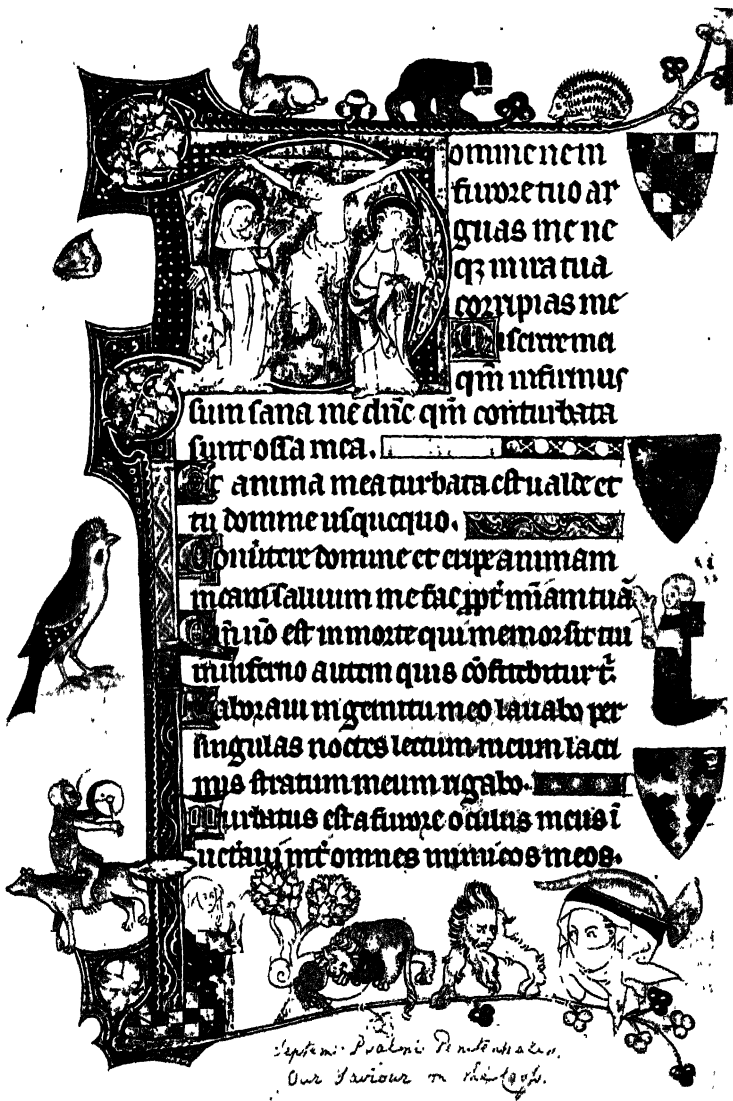 omine ne in
furore tuo ar
guas me ne
qȝ in ira tua
corripias me
Miserere mei
qm̄ infirmus
sum sana me dñe qm̄ conturbata
sunt ossa mea.
Et anima mea turbata est ualde et
tu domine usquequo.
Conūtere domine et eripe animam
meam saluum me fac ꝓpt̄ mīam tuā
Qm̄ nō est in morte qui memor sit tui
in inferno autem quis cōfitebitur t̄
Laboraui in gemitu meo lauabo per
singulas noctes lectum meum lacri
mis stratum meum rigabo.
Turbatus est a furore oculus meus ī
ueterauī int̄ omnes inimicos meos.
Septem Psalmi Penitentiales.
Our Saviour on the Cross.